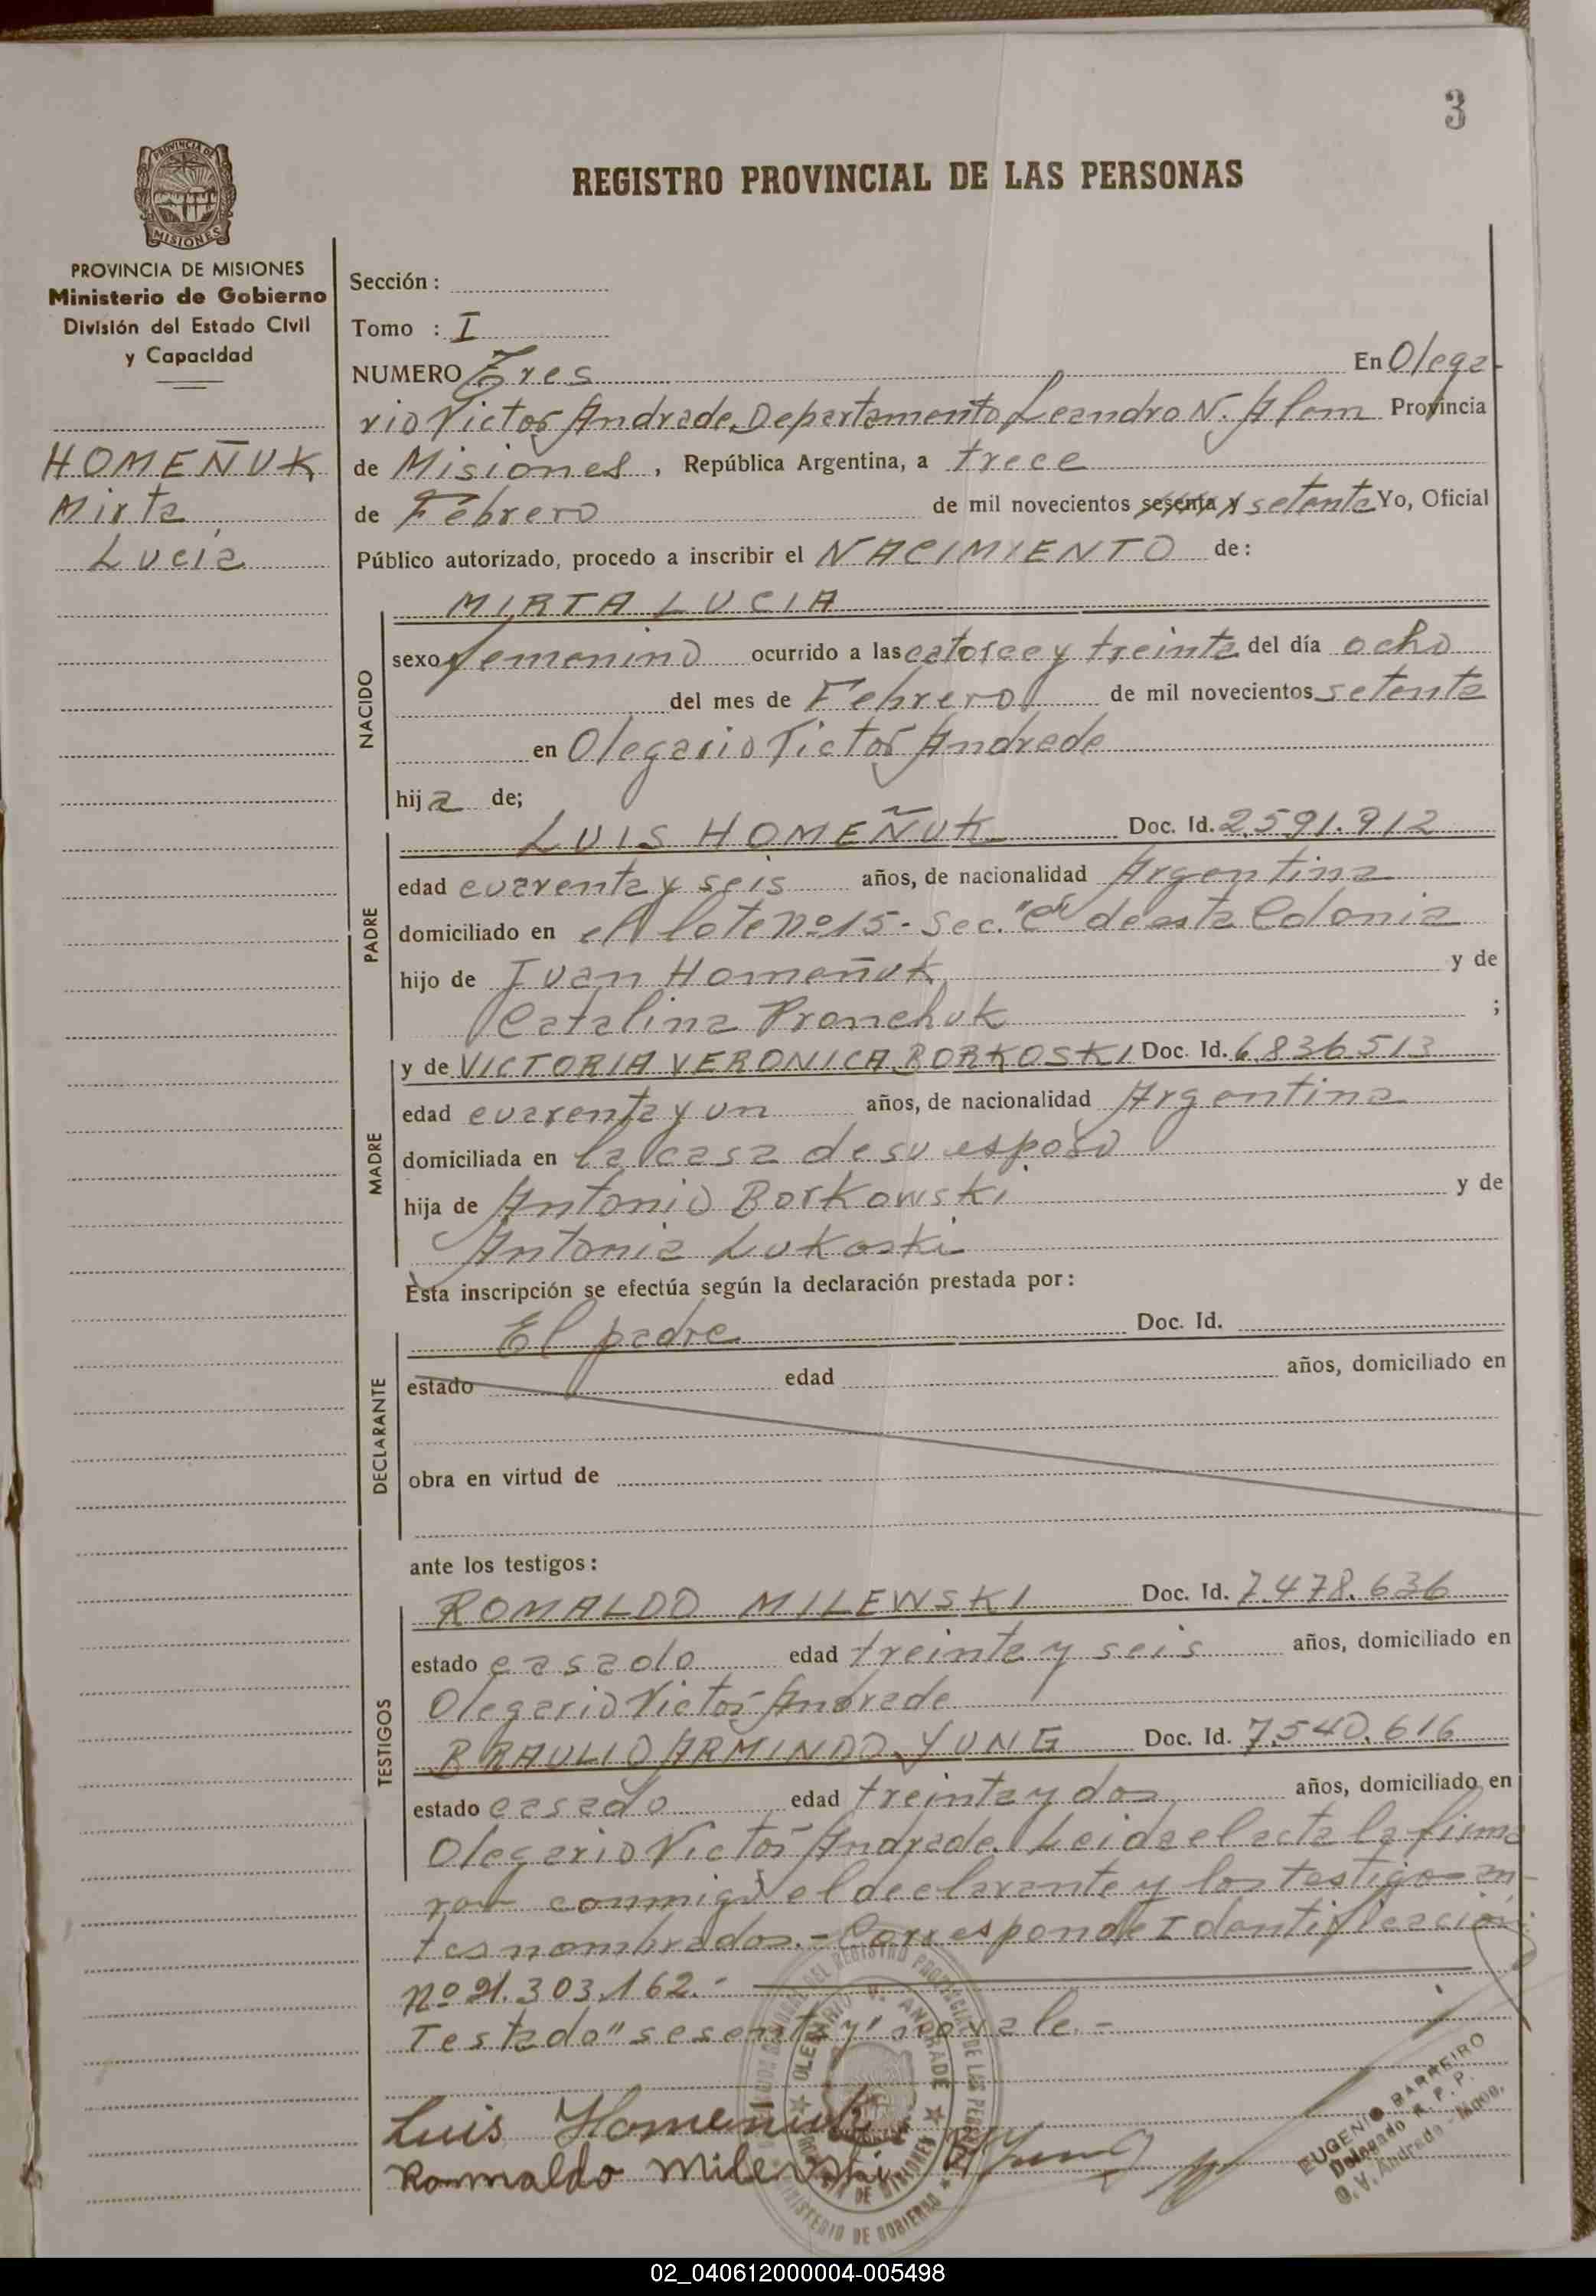 3
PROVINCIA DE
MISIONES
REGISTRO PROVINCIAL DE LAS PERSONAS
PROVINCIA DE MISIONES
Ministerio de Gobierno
División del Estado Civil
y Capacidad
HOMEÑUK
Mirta
Lucía
Sección :
Tomo : I
NUMERO Tres En Olega-
rio Victor Andrade, Departamento Leandro N. Alem Provincia
de Misiones, República Argentina, a trece
de Febrero de mil novecientos sesenta y setenta Yo, Oficial
Público autorizado, procedo a inscribir el NACIMIENTO de:
NACIDO
MIRTA LUCIA
sexo femenino ocurrido a las catorce y treinta del día ocho
del mes de Febrero de mil novecientos setenta
en Olegario Victor Andrade
hija de;
PADRE
LUIS HOMEÑUK Doc. Id. 2.591.912
edad cuarenta y seis años, de nacionalidad Argentina
domiciliado en el lote nº 15 - Sec. "C" de esta Colonia
hijo de Ivan Homeñuk y de
Catalina Pronchuk ;
MADRE
y de VICTORIA VERONICA BORKOSKI Doc. Id. 6.836.513
edad cuarenta y un años, de nacionalidad Argentina
domiciliada en la casa de su esposo
hija de Antonio Borkowski y de
Antonia Lukoski
Esta inscripción se efectúa según la declaración prestada por:
DECLARANTE
El padre Doc. Id.
estado edad años, domiciliado en
obra en virtud de
ante los testigos:
TESTIGOS
ROMALDO MILEWSKI Doc. Id. 7.478.636
estado casado edad treinta y seis años, domiciliado en
Olegario Victor Andrade
BRAULIO ARMINDO YUNG Doc. Id. 7.540.616
estado casado edad treinta y dos años, domiciliado en
Olegario Victor Andrade. Leida el acta la firma
ron conmigo el declarante y los testigos an-
tes nombrados.- Corresponde Identificación
Nº 21.303.162.-
Testado "sesenta y" no vale.-
Luis Homeniuk
Romaldo Milewski
OLEGARIO V. ANDRADE
MINISTERIO DE GOBIERNO
EUGENIO BARREIRO
Delegado R. P. P.
O. V. Andrade - Mnes.
02_040612000004-005498